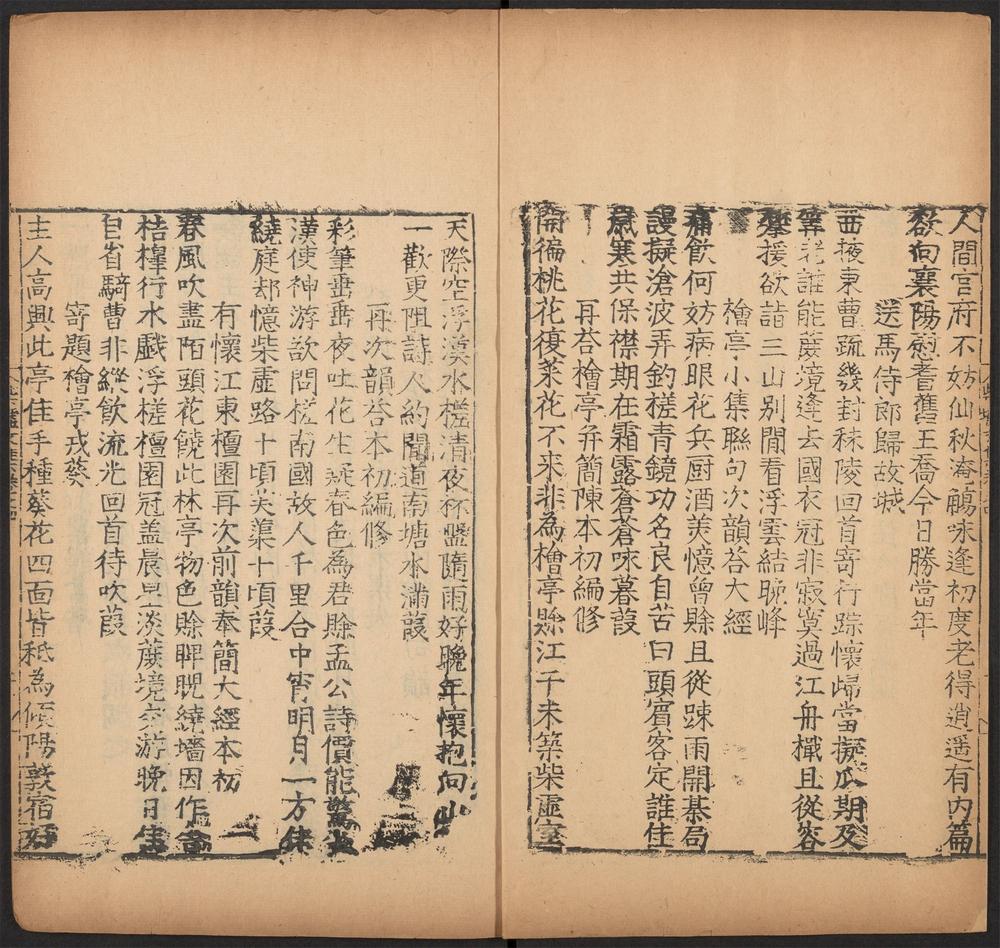 人間官府不妨仙秋海鷗唳逢初度老得逍遥有内篇
欲向襄陽耆舊王喬今日勝當年
送馬侍郎歸故城
西掖東曹疏幾封秣陵回首寄行踪懷歸當擬瓜期及
老誰能蔗境逢去國衣冠非寂寞過江舟檝且從容
攀援欲詣三山别閒看浮雲結晚峰
檜亭小集聯句次韻荅大經
痛飲何妨病眼花兵厨酒美憶曾賒且從踈雨開棊局
謾擬滄波弄釣槎青鏡功名良自苦白頭賓客定誰佳
歲寒共保襟期在霜露蒼蒼唳暮葭
再荅檜亭并簡陳本初編修
開徧桃花復菜花不来非為檜亭賒江子未築柴虛室
天際空浮漢水槎清夜杯盤隨雨好晚年懷抱向
一歡更阻詩人約聞道南塘水滿葭
再次韻荅本初編修
彩筆垂垂夜吐花生疑春色為君賒孟公詩價能驚
漢使神游欲問槎南國故人千里合中宵明月一方佳
繞庭却憶柴虛路十頃芙蕖十頃葭
有懷江東檀園再次前韻奉簡大經本初
春風吹盡陌頭花饒此林亭物色賒睥睨繞墻因作
桔槔行水戲浮槎檀園冠盖晨星淡蔗境交游晚日佳
自省騎曹非縱飲流光回首待吹葭
寄題檜亭戎葵
主人高興此亭佳手種葵花四面皆秪為傾陽敦宿好